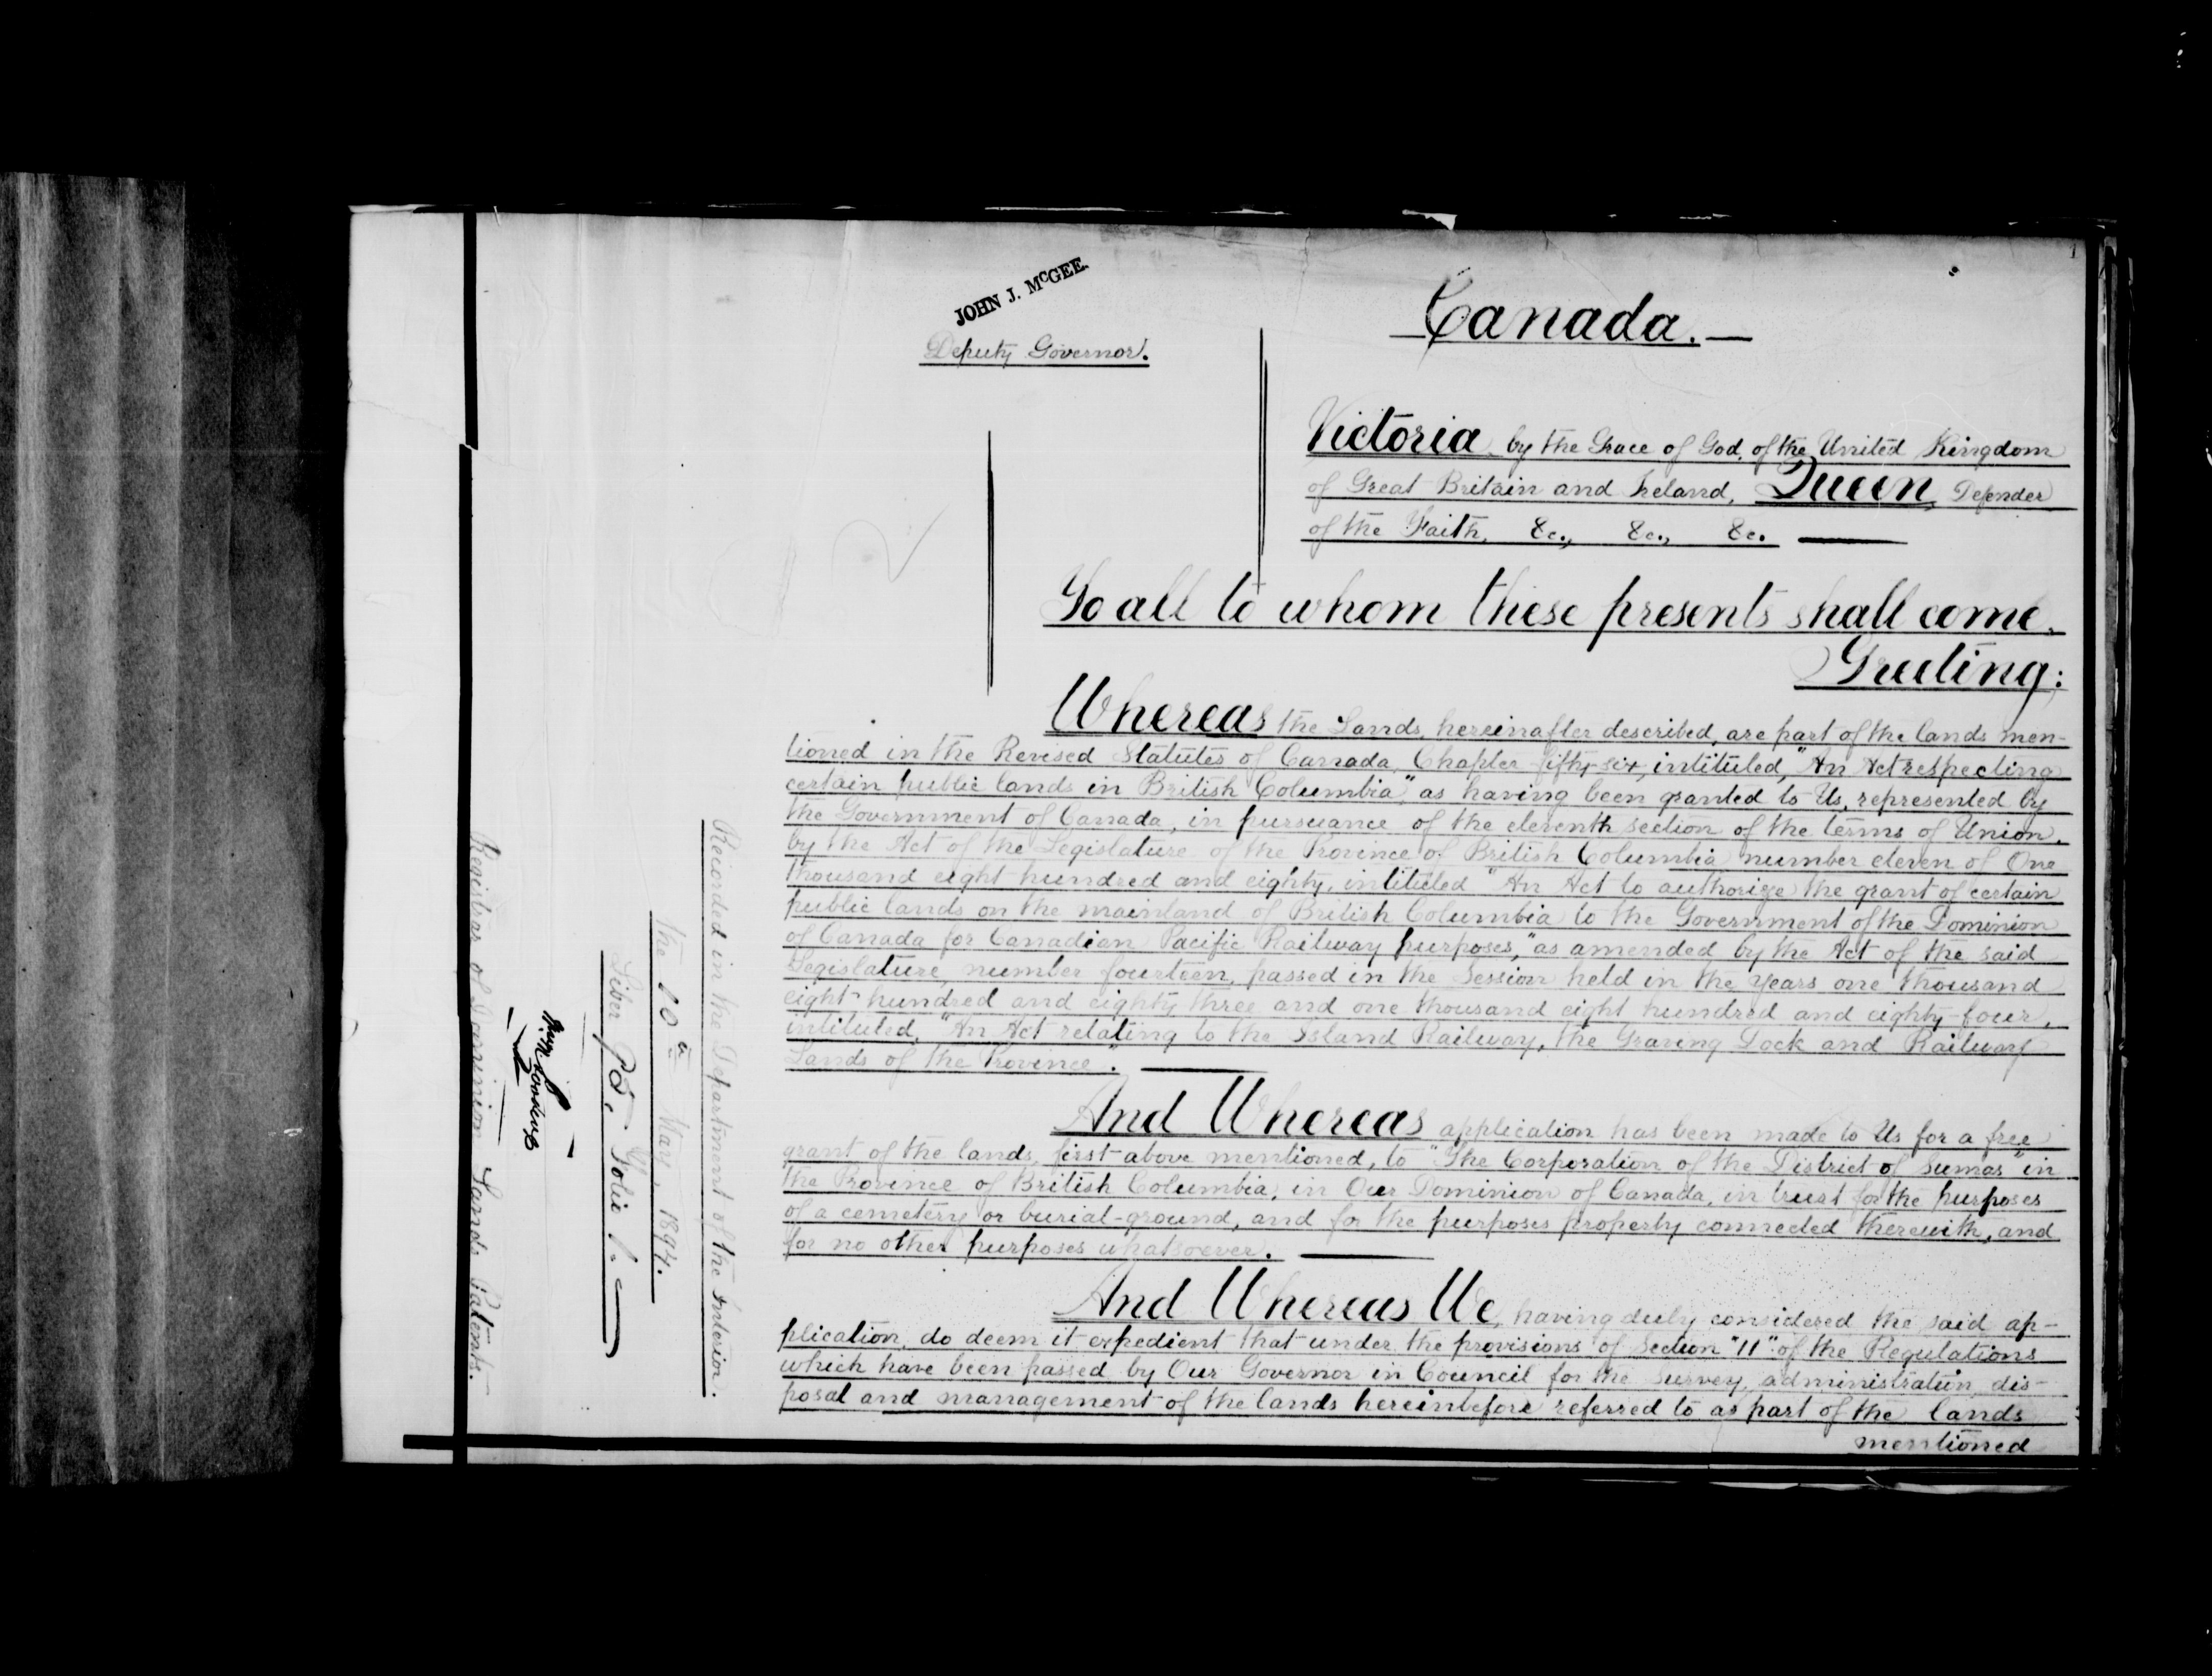 JOHN J. McGEE.
Deputy Governor.
Canada.
Victoria by the Grace of God, of the United Kingdom
of Great Britain and Ireland, Queen, Defender
of the Faith, &c., &c., &c.
To all to whom these presents shall come.
Greeting:
Whereas the Lands, hereinafter described, are part of the lands men-
tioned in the Revised Statutes of Canada, Chapter fifty-six, intituled, "An Act respecting
certain public lands in British Columbia," as having been granted to Us, represented by
the Government of Canada, in pursuance of the eleventh section of the terms of Union,
by the Act of the Legislature of the Province of British Columbia number eleven of One
thousand eight hundred and eighty, intituled "An Act to authorize the grant of certain
public lands on the mainland of British Columbia to the Government of the Dominion
of Canada for Canadian Pacific Railway purposes," as amended by the Act of the said
Legislature, number fourteen, passed in the Session held in the years one thousand
eight hundred and eighty three and one thousand eight hundred and eighty-four,
intituled, "An Act relating to the Island Railway, the Graving Dock and Railway
Lands of the Province".
And Whereas application has been made to Us for a free
grant of the lands, first above mentioned, to "The Corporation of the District of Sumas" in
the Province of British Columbia, in Our Dominion of Canada, in trust for the purposes
of a cemetery or burial-ground, and for the purposes properly connected therewith, and
for no other purposes whatsoever.
And Whereas We, having duly considered the said ap-
plication, do deem it expedient that under the provisions of Section "11" of the Regulations
which have been passed by Our Governor in Council for the survey, administration, dis-
posal and management of the lands hereinbefore referred to as part of the lands
mentioned
Recorded in the Department of the Interior.
the 10th May, 1894.
Liber 95. Folio 1.
Registrar of Dominion Lands Patents.